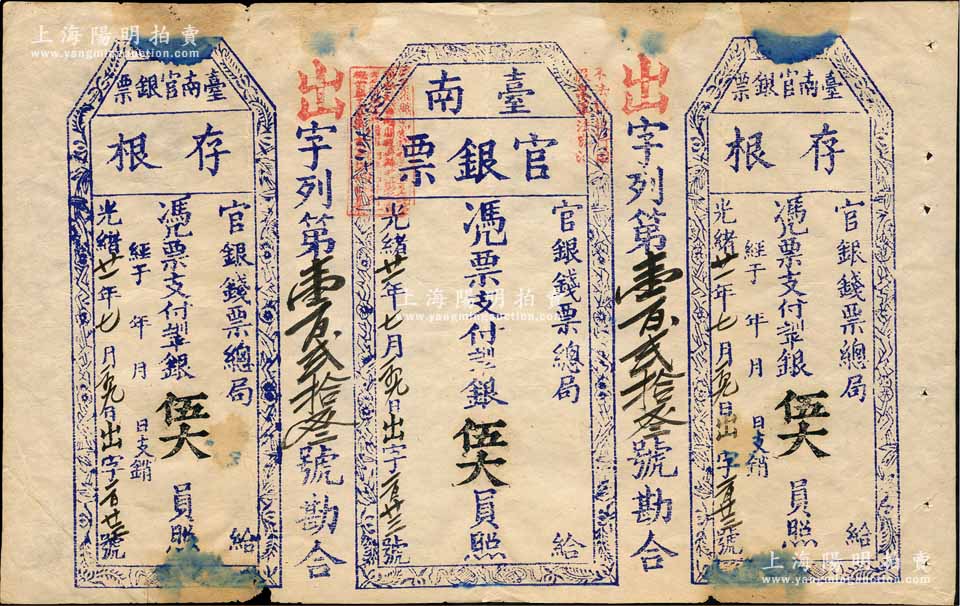 上海陽明拍賣
www.yangmingauction.com
臺南官銀票
存根
官銀錢票總局 給
憑票支付 銀伍大員照
經于 年 月 日支銷
光緒廿一年七月 日出字一百廿三號
出字列第壹百貳拾叁號勘合
臺南
官銀票
官銀錢票總局 給
憑票支付 銀伍大員照
光緒廿一年七月 日出字一百廿三號
上海陽明拍賣
www.yangmingauction.com
出字列第壹百貳拾 號勘合
臺南官銀票
存根
官銀錢票總局 給
憑票支付 銀伍大員照
經于 年 月 日支銷
光緒廿一年七月 日出字一百廿三號
上海陽明拍賣
www.yangmingauction.com